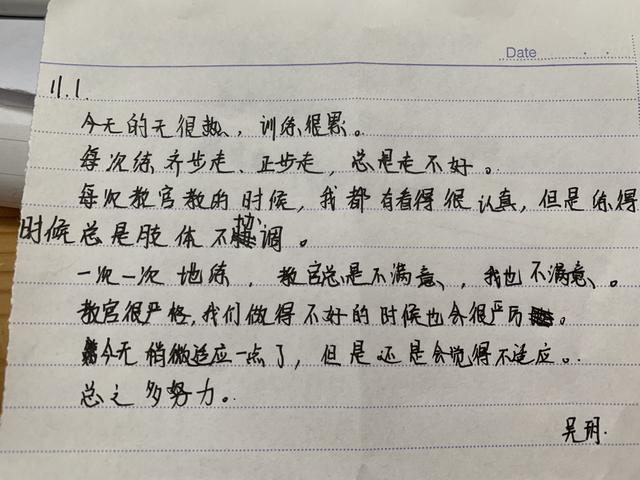 Date
11.1.
今天的天很热、训练很累。
每次练齐步走、正步走,总是走不好。
每次教官教的时候,我都有看得很认真,但是练得
时候总是肢体不协调。
一次一次地练,教官总是不满意、我也不满意、。
教官很严格,我们做得不好的时候也会很严厉。
今天稍微适应一点了,但是还是会觉得不适应。
总之多努力。
吴玥.